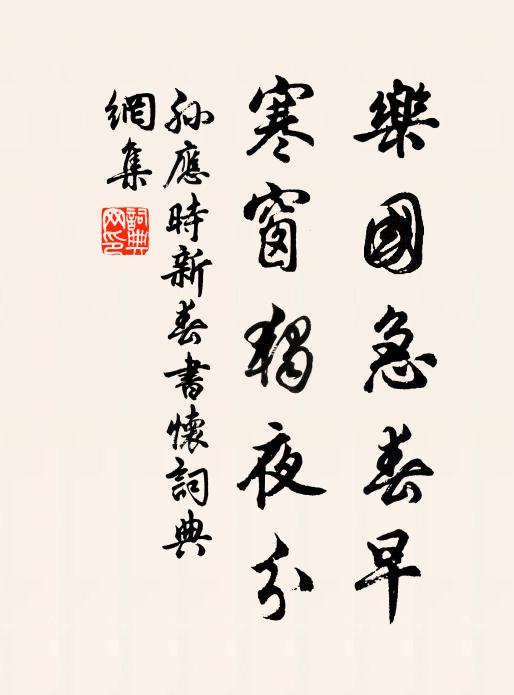 樂國急春早
寒窗獨夜分
孫應時新春書懷詞典
網集
詞典網印